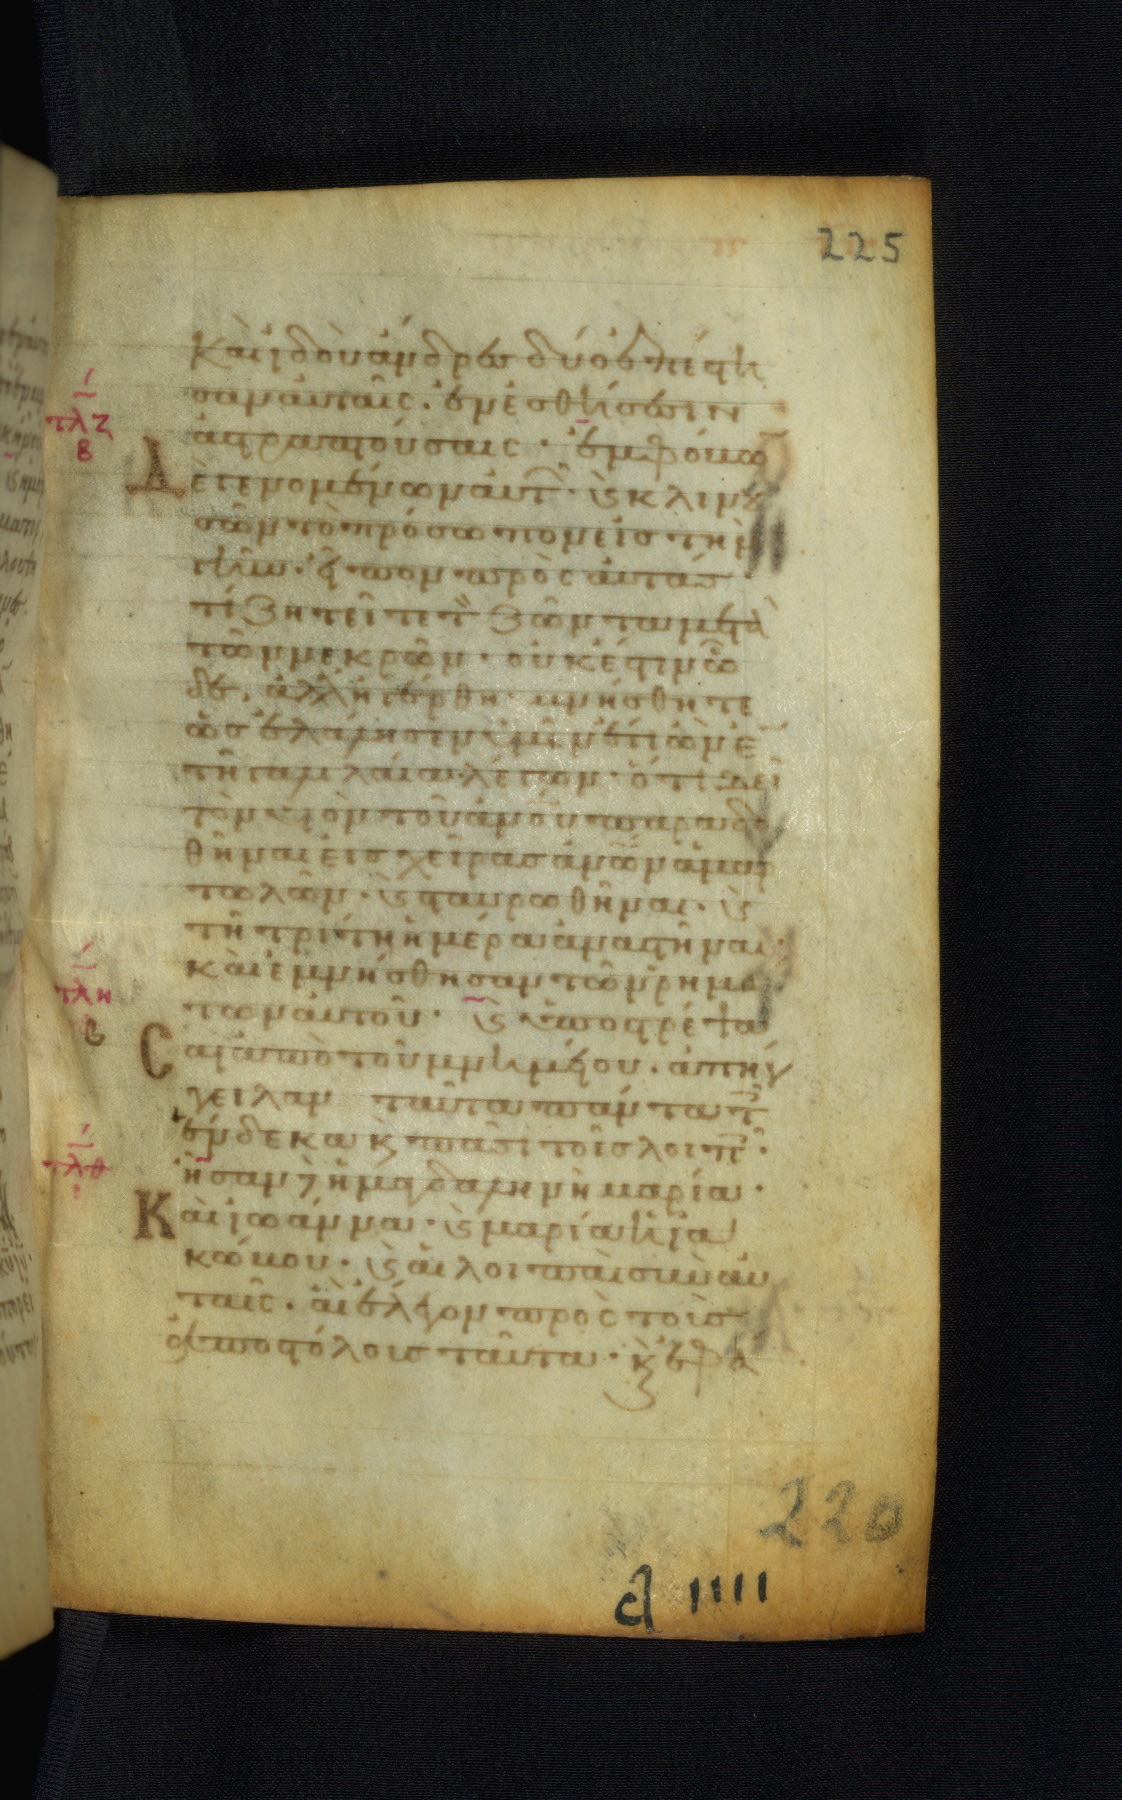 225
και ιδου ανδρες δυο επέστη
σαν αυταῖς· ἐν ἐσθήσεσιν
ἀστραπτούσαις· ἐμφόβων
δὲ γενομένων αὐτ· κ κλινου
σῶν τὸ πρόσωπον εἰς τὴν
γῆν· εἶπον πρὸς αὐτάς·
τί ζητεῖτε τ ζῶντα μετὰ
τῶν νεκρῶν· οὐκ ἔστιν ὧ
δε, ἀλλ ἠγέρθη· μνήσθητε
ὡς ἐλάλησεν ὑμῖν ἔτι ὢν ἐ
τῆ γαλιλαία λέγων· ὅτι δεῖ
τὸν υἱὸν τοῦ ανου παραδο
θῆναι εἰς χεῖρας ανων ἁμαρ
τωλῶν· κ σταυρωθῆναι· κ
τῆ τρίτη ἡμέρα ἀναστῆναι·
καὶ ἐμνήσθησαν τῶν ρημά
των αὐτοῦ· κ ὑποστρέψα
σαι ἀπὸ τοῦ μνημείου· ἀπήγ
γειλαν ταῦτα πάντα τ
ἕνδεκα κ πᾶσι τοῖς λοιπ·
ἦσαν δὲ ἡ μαγδαληνὴ μαρία·
Και ιωάννα· κ μαρία ἡ ια
κώβου· κ αἱ λοιπαὶ σὺν αὐ
ταῖς· αἳ ἔλεγον πρὸς τοὺς
ἀποστόλους ταῦτα· κ ἐφά
τλζ
β
τλη
β
τλθ
ι
220